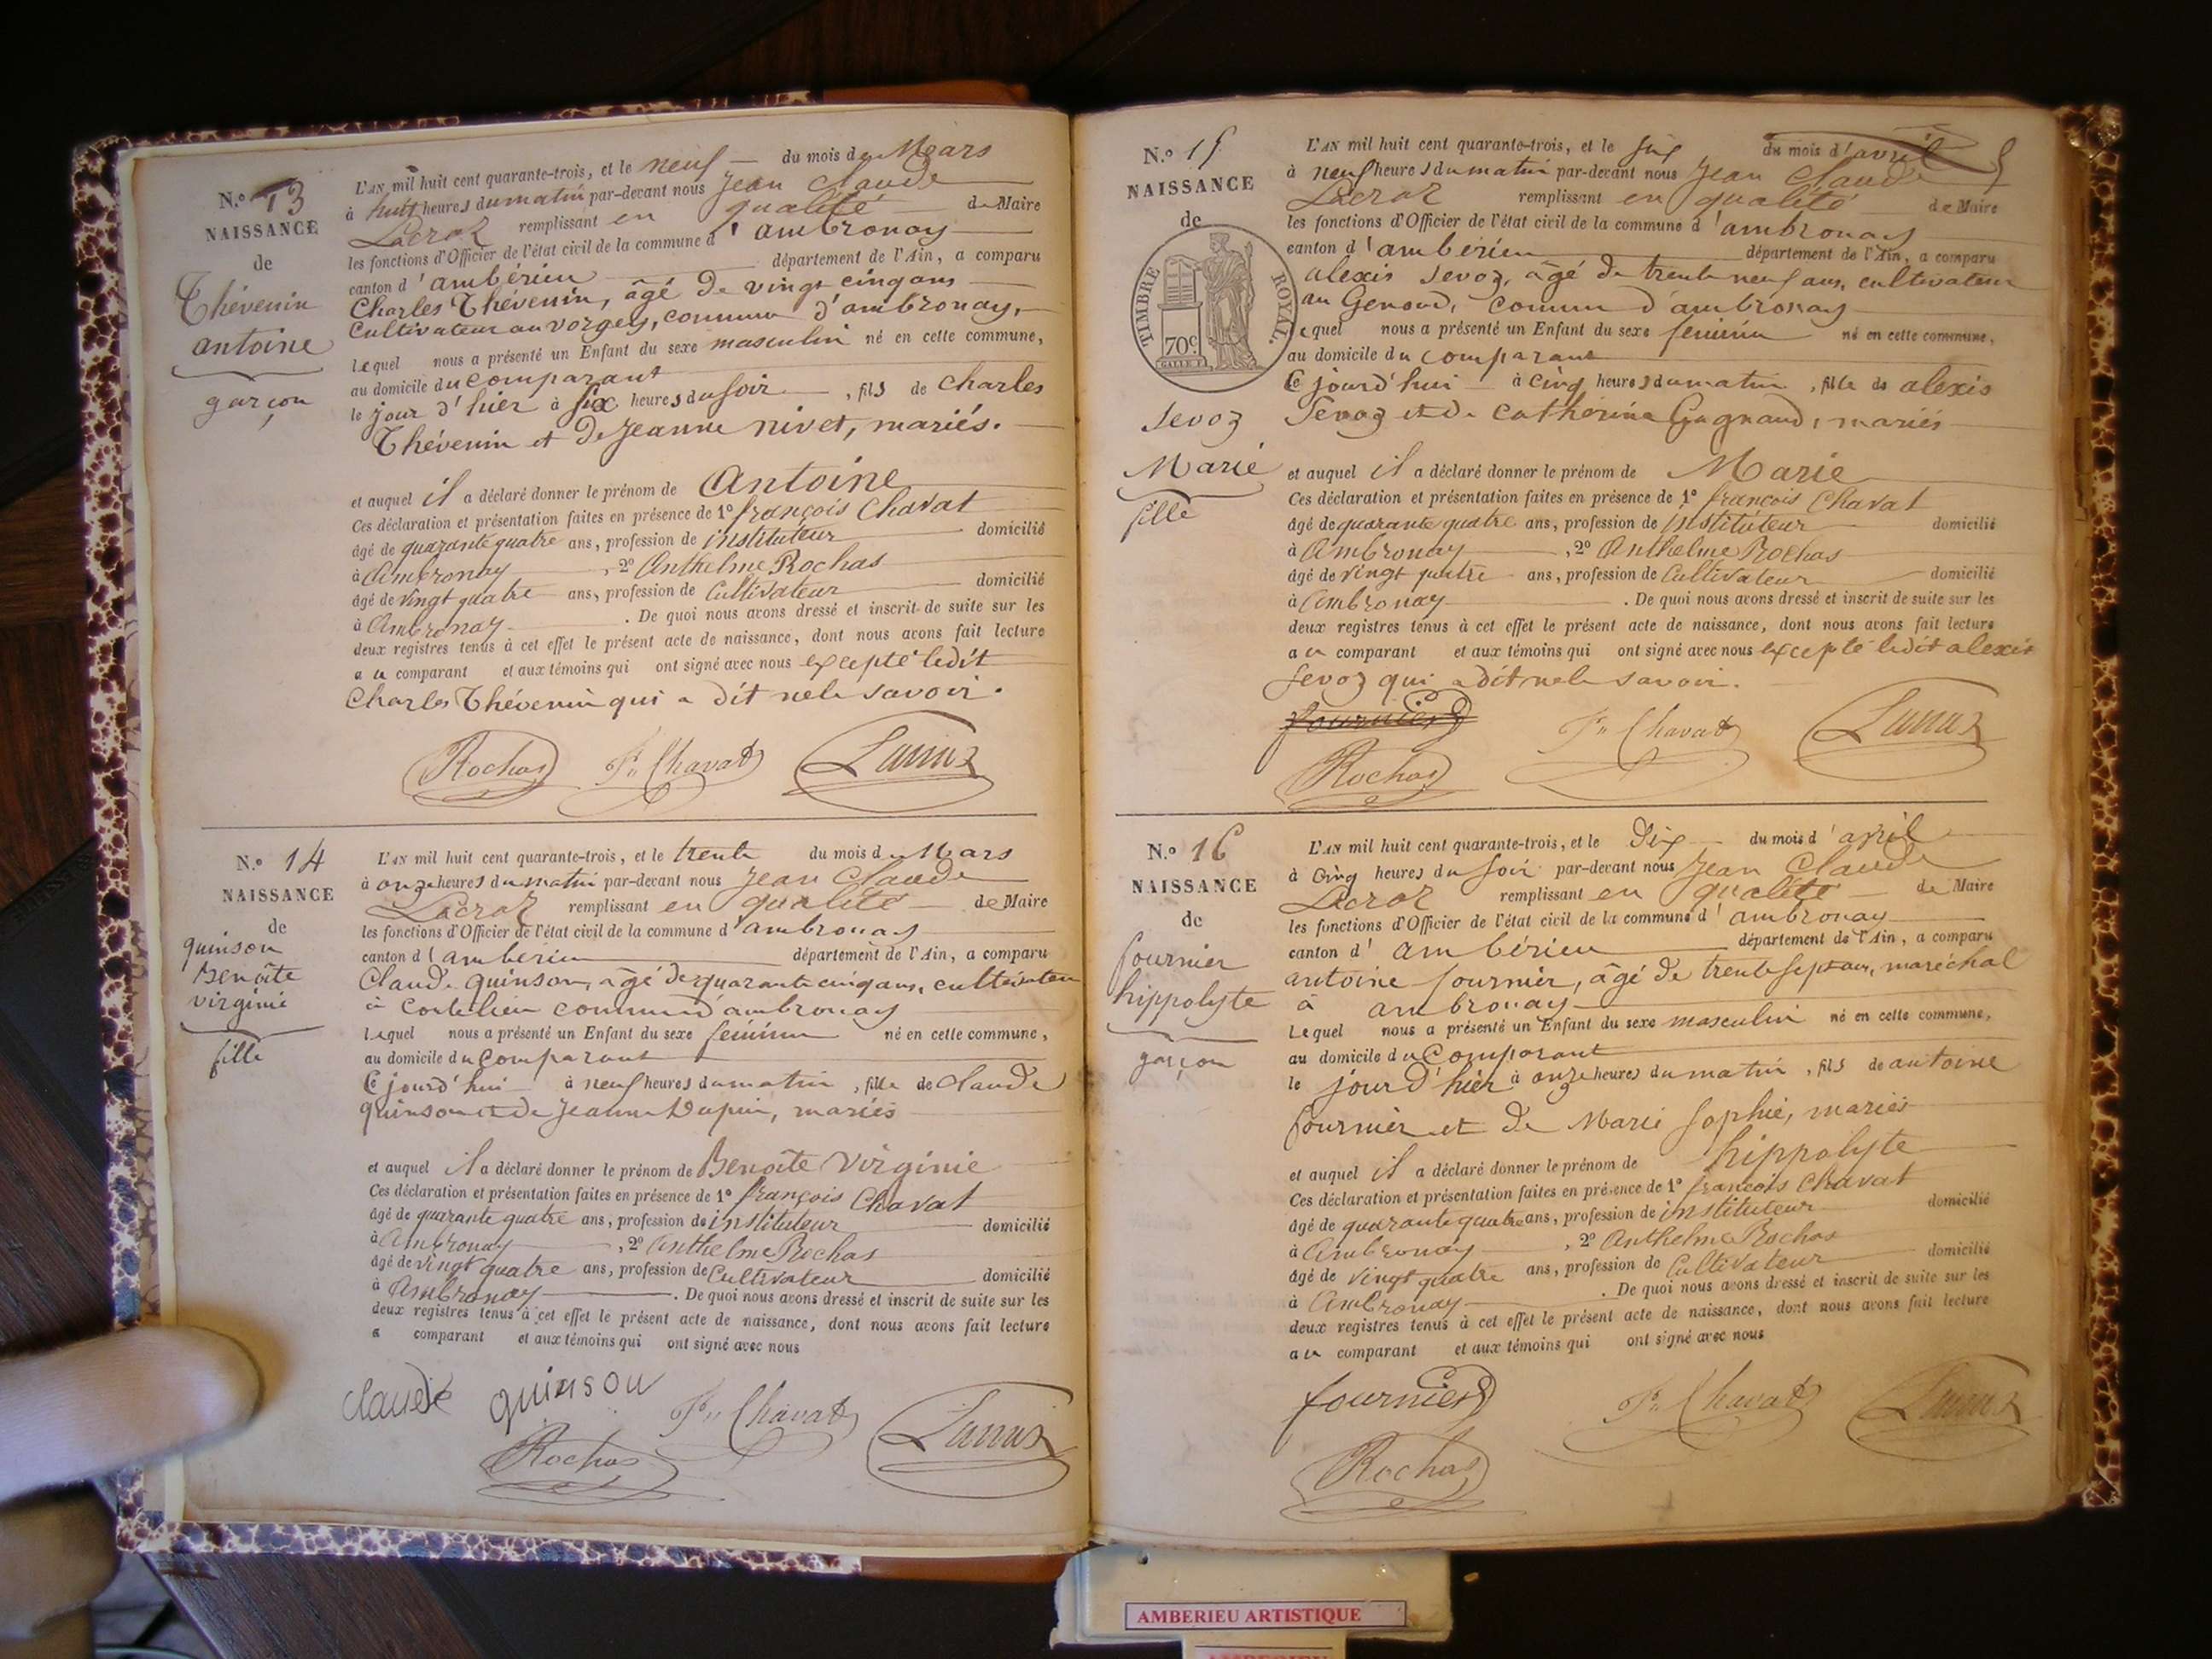 N.º 13
NAISSANCE
de
Thévenin
antoine
garçon
L'AN mil huit cent quarante-trois, et le neuf du mois de Mars
à huit heures du matin par-devant nous Jean Claude
Lacroz remplissant en qualité de Maire
les fonctions d'Officier de l'état civil de la commune d'ambronay
canton d'ambérieu département de l'Ain, a comparu
Charles Thévenin, âgé de vingt cinq ans
Cultivateur au vorgey, commune d'ambronay,
Lequel nous a présenté un Enfant du sexe masculin né en cette commune,
au domicile du comparant
le jour d'hier à six heures du soir, fils de Charles
Thévenin et de Jeanne nivet, mariés.
et auquel il a déclaré donner le prénom de Antoine
Ces déclaration et présentation faites en présence de 1º françois Chavat
âgé de quarante quatre ans, profession de instituteur domicilié
à Ambronay, 2º Anthelme Rochas
âgé de vingt quatre ans, profession de Cultivateur domicilié
à Ambronay. De quoi nous avons dressé et inscrit de suite sur les
deux registres tenus à cet effet le présent acte de naissance, dont nous avons fait lecture
au comparant et aux témoins qui ont signé avec nous excepté ledit
Charles Thévenin qui a dit ne le savoir.
Rochas Fs Chavat
N.º 14
NAISSANCE
de
quinson
Benoîte
virginie
fille
L'AN mil huit cent quarante-trois, et le trente du mois de Mars
à onze heures du matin par-devant nous Jean Claude
Lacroz remplissant en qualité de Maire
les fonctions d'Officier de l'état civil de la commune d'ambronay
canton d'ambérieu département de l'Ain, a comparu
Claude quinson, âgé de quarante cinq ans, cultivateur
à Coutelieu commune d'ambronay
Lequel nous a présenté un Enfant du sexe féminin né en cette commune,
au domicile du comparant
ce jourd'hui à neuf heures du matin, fille de Claude
quinson et de Jeanne Dupin, mariés
et auquel il a déclaré donner le prénom de Benoîte Virginie
Ces déclaration et présentation faites en présence de 1º françois Chavat
âgé de quarante quatre ans, profession de instituteur domicilié
à Ambronay, 2º Anthelme Rochas
âgé de vingt quatre ans, profession de Cultivateur domicilié
à Ambronay. De quoi nous avons dressé et inscrit de suite sur les
deux registres tenus à cet effet le présent acte de naissance, dont nous avons fait lecture
a comparant et aux témoins qui ont signé avec nous
claude quinson Fs Chavat
Rochas
N.º 15
NAISSANCE
de
TIMBRE ROYAL.
70c.
Sevoz
Marie
fille
L'AN mil huit cent quarante-trois, et le six du mois d'avril
à neuf heures du matin par-devant nous Jean Claude
Lacroz remplissant en qualité de Maire
les fonctions d'Officier de l'état civil de la commune d'ambronay
canton d'ambérieu département de l'Ain, a comparu
alexis Sevoz, âgé de trente neuf ans, cultivateur
au Genoud, commune d'ambronay
Lequel nous a présenté un Enfant du sexe féminin né en cette commune,
au domicile du comparant
ce jourd'hui à cinq heures du matin, fille de alexis
Sevoz et de Catherine Gagnaud, mariés
et auquel il a déclaré donner le prénom de Marie
Ces déclaration et présentation faites en présence de 1º françois Chavat
âgé de quarante quatre ans, profession de instituteur domicilié
à Ambronay, 2º Anthelme Rochas
âgé de vingt quatre ans, profession de Cultivateur domicilié
à Ambronay. De quoi nous avons dressé et inscrit de suite sur les
deux registres tenus à cet effet le présent acte de naissance, dont nous avons fait lecture
au comparant et aux témoins qui ont signé avec nous excepté ledit alexis
Sevoz qui a dit ne le savoir.
fournier Fs Chavat
Rochas
N.º 16
NAISSANCE
de
fournier
hippolyte
garçon
L'AN mil huit cent quarante-trois, et le dix du mois d'avril
à cinq heures du soir par-devant nous Jean Claude
Lacroz remplissant en qualité de Maire
les fonctions d'Officier de l'état civil de la commune d'ambronay
canton d'ambérieu département de l'Ain, a comparu
antoine fournier, âgé de trente sept ans, maréchal
à ambronay
Lequel nous a présenté un Enfant du sexe masculin né en cette commune,
au domicile du comparant
le jour d'hier à onze heures du matin, fils de antoine
fournier et de Marie Sophie, mariés
et auquel il a déclaré donner le prénom de hippolyte
Ces déclaration et présentation faites en présence de 1º françois Chavat
âgé de quarante quatre ans, profession de instituteur domicilié
à Ambronay, 2º Anthelme Rochas
âgé de vingt quatre ans, profession de Cultivateur domicilié
à Ambronay. De quoi nous avons dressé et inscrit de suite sur les
deux registres tenus à cet effet le présent acte de naissance, dont nous avons fait lecture
au comparant et aux témoins qui ont signé avec nous
fournier Fs Chavat
Rochas
AMBERIEU ARTISTIQUE